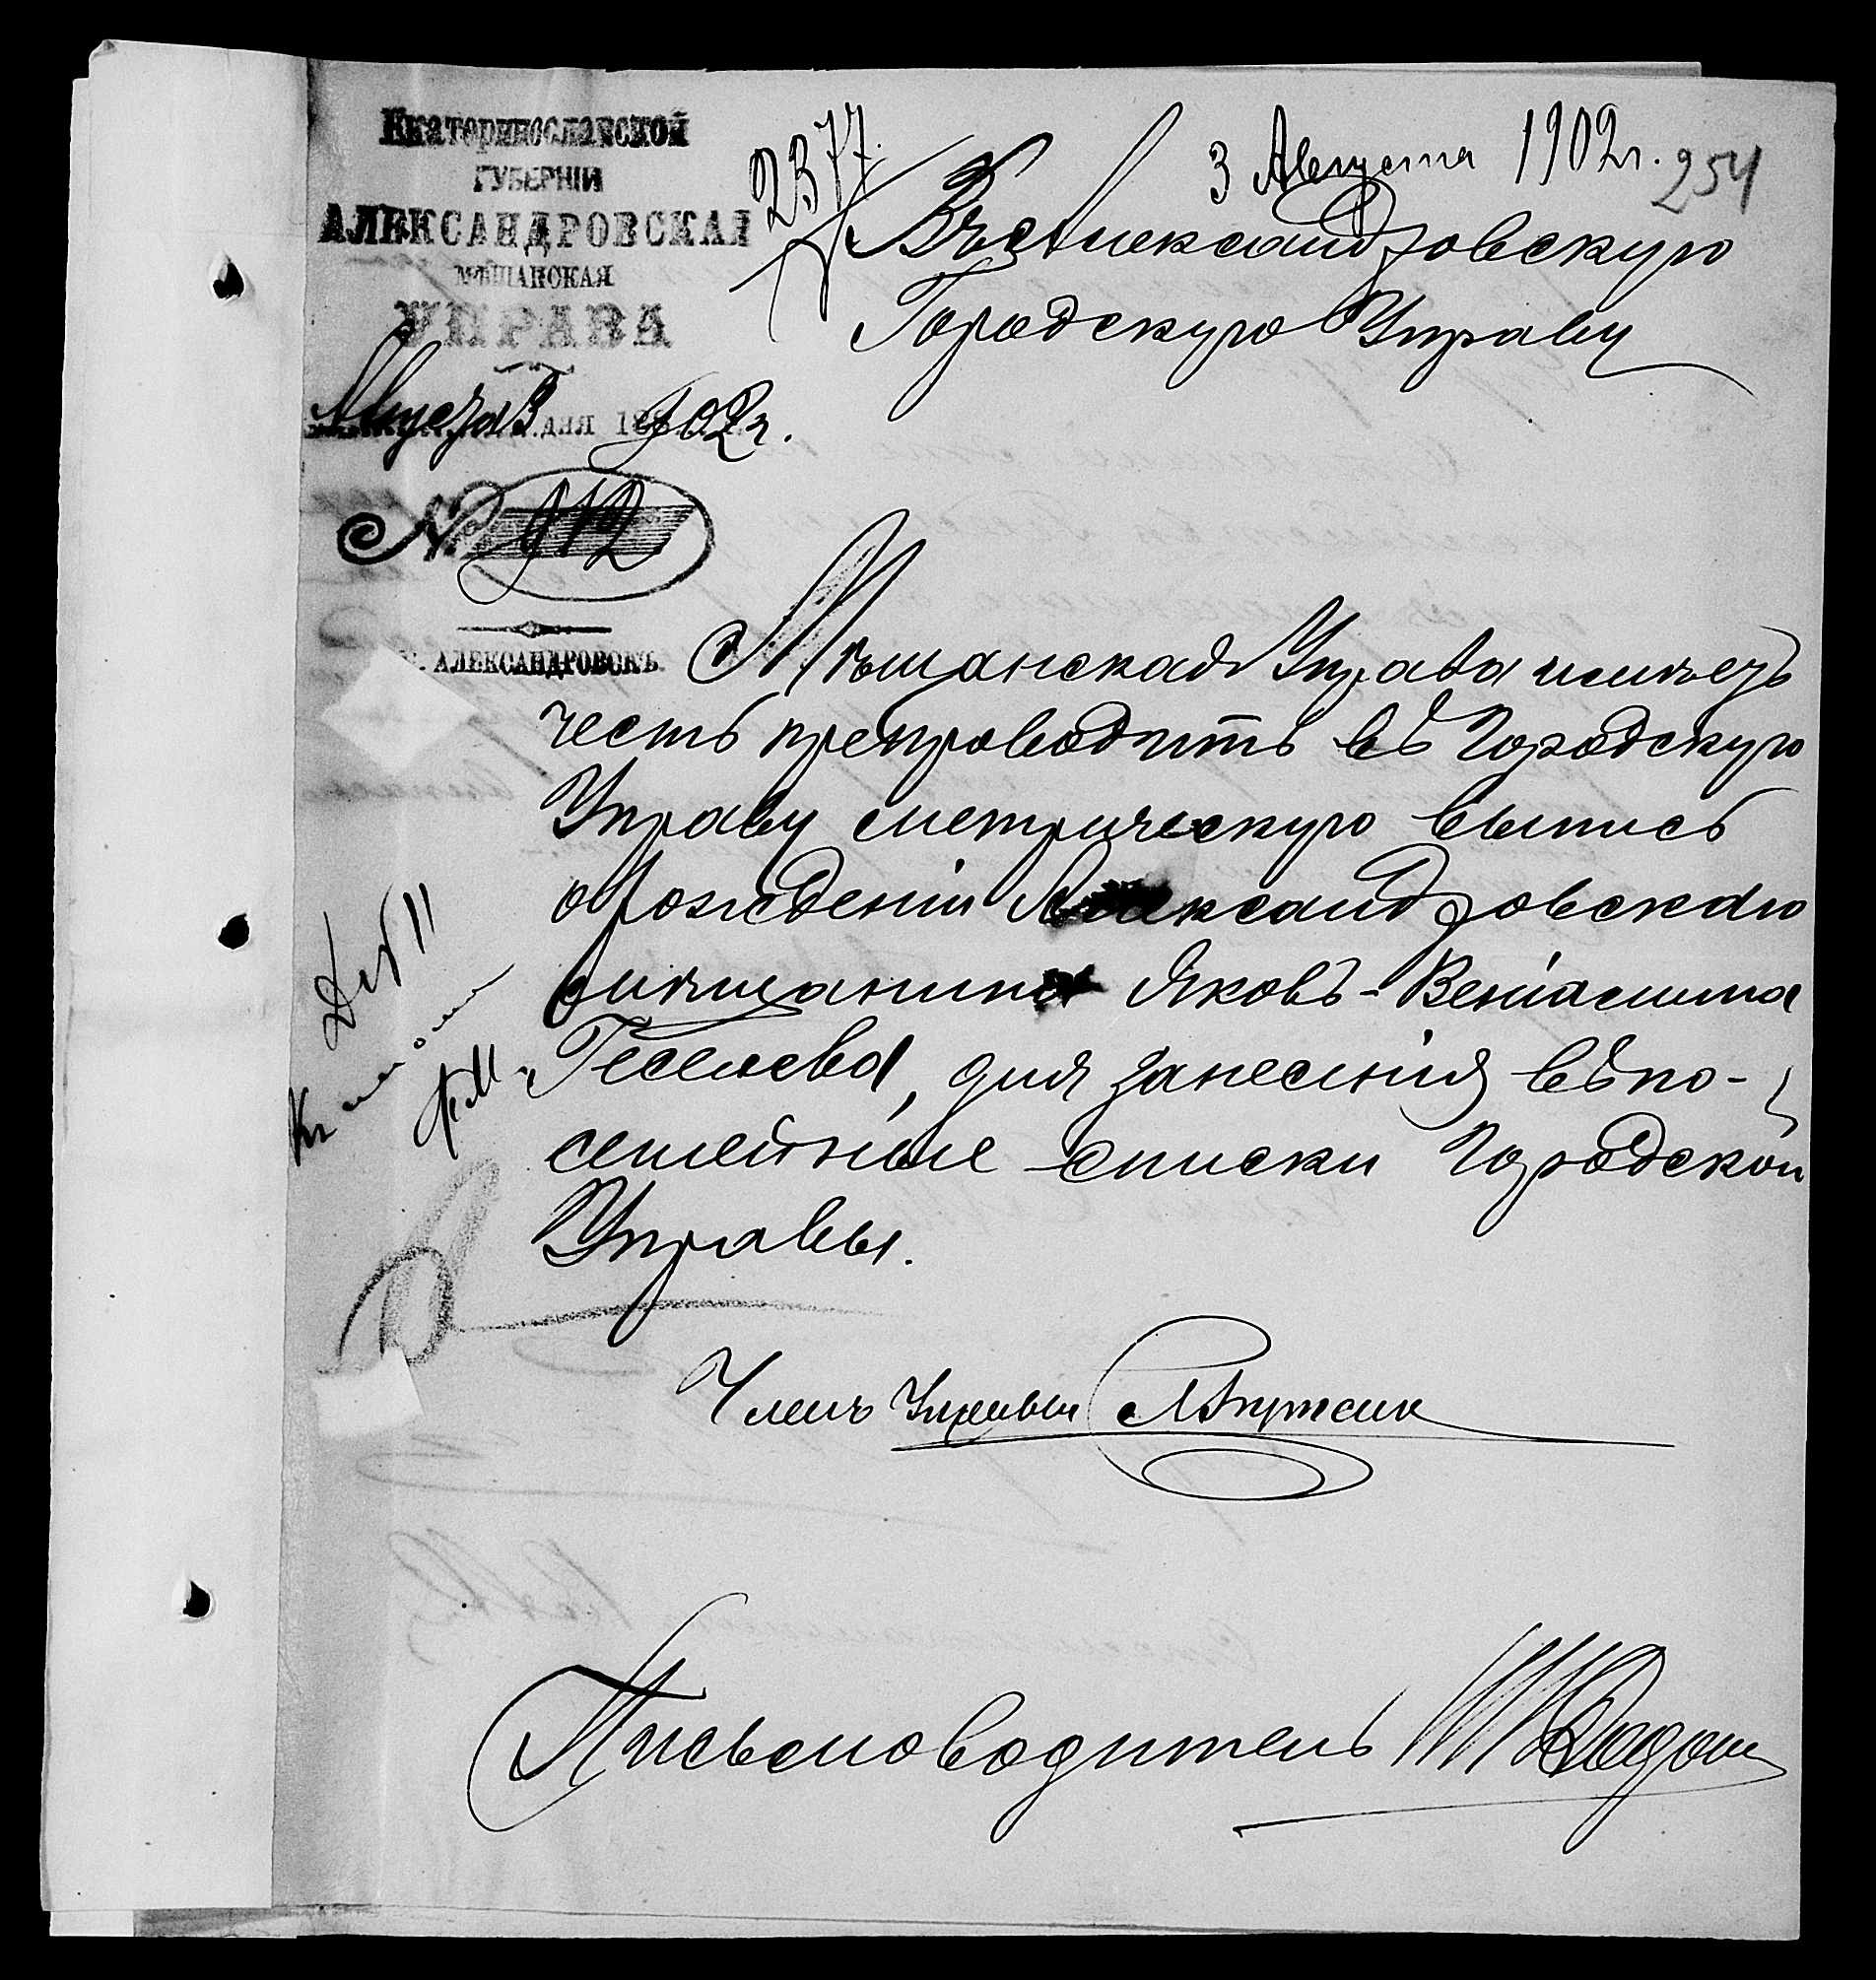 Екатеринославской
ГУБЕРНІИ
АЛЕКСАНДРОВСКАЯ
МѢЩАНСКАЯ
УПРАВА
Августа 3 дня 1902 г.
№ 912
Г. АЛЕКСАНДРОВСКЪ.
2377.
3 Августа 1902 г.
254
Въ Александровскую
Городскую Управу
Мѣщанская Управа имѣетъ
честь препроводить въ Городскую
Управу метрическую выпись
о рожденіи Александровскаго
мѣщанина Яковъ-Веніамина
Геселева, для занесенія въ по-
семейные списки Городской
Управы.
Членъ Управы
Письмоводитель